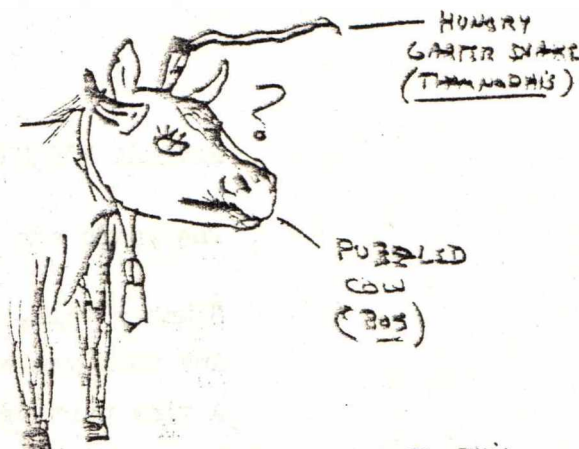 HUNGRY
GARTER SNAKE
(THAMNOPHIS)
?
PUZZLED
COW
(BOS)